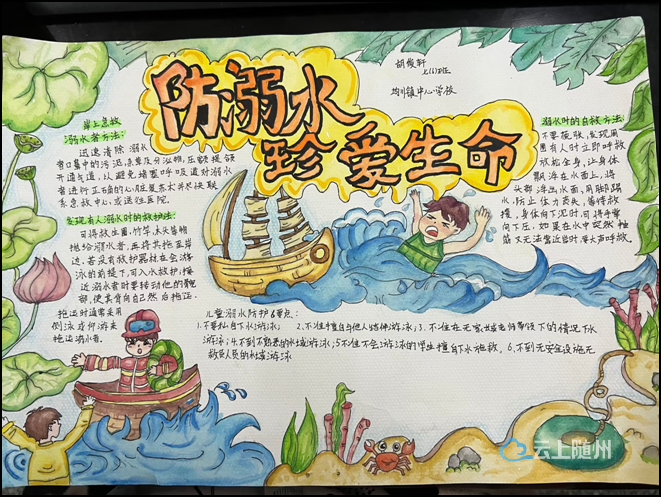 防溺水
珍爱生命
胡俊轩
七(6)班
均川镇中心学校
岸上急救
溺水者方法:
迅速清除溺水
者口鼻中的污泥、杂草及分泌物,压额提颏
开通气道,以避免堵塞呼吸道对溺水
者进行正确的心脏复苏术并尽快联
系急救中心或送往医院。
发现有人溺水时的救护法:
可将救生圈、竹竿、木头等物
抛给溺水者,再将其拖至岸
边。若没有救护器材在会游
泳的前提下,可入水救护,接
近溺水者时要转动他的髋
部,使其背向自己然后拖运。
拖运时通常采用
侧泳或仰游来
拖运溺水者。
溺水时的自救方法:
不要慌张,发现周
围有人时立即呼救
放松全身,让身体
飘浮在水面上,将
头部浮出水面,用脚踢
水,防止体力丧失,等待救
援,身体向下沉时,可将手掌
向下压,如果在水中突然抽
筋又无法靠近岸时,要大声呼救。
儿童溺水防护6要点:
1.不要私自下水游泳; 2.不准擅自与他人结伴游泳; 3.不准在无家长或老师带领下的情况下水
游泳;4.不到不熟悉的水域游泳;5.不准不会游泳的学生擅自下水施救,6.不到无安全设施无
救援人员的水域游泳
云上随州